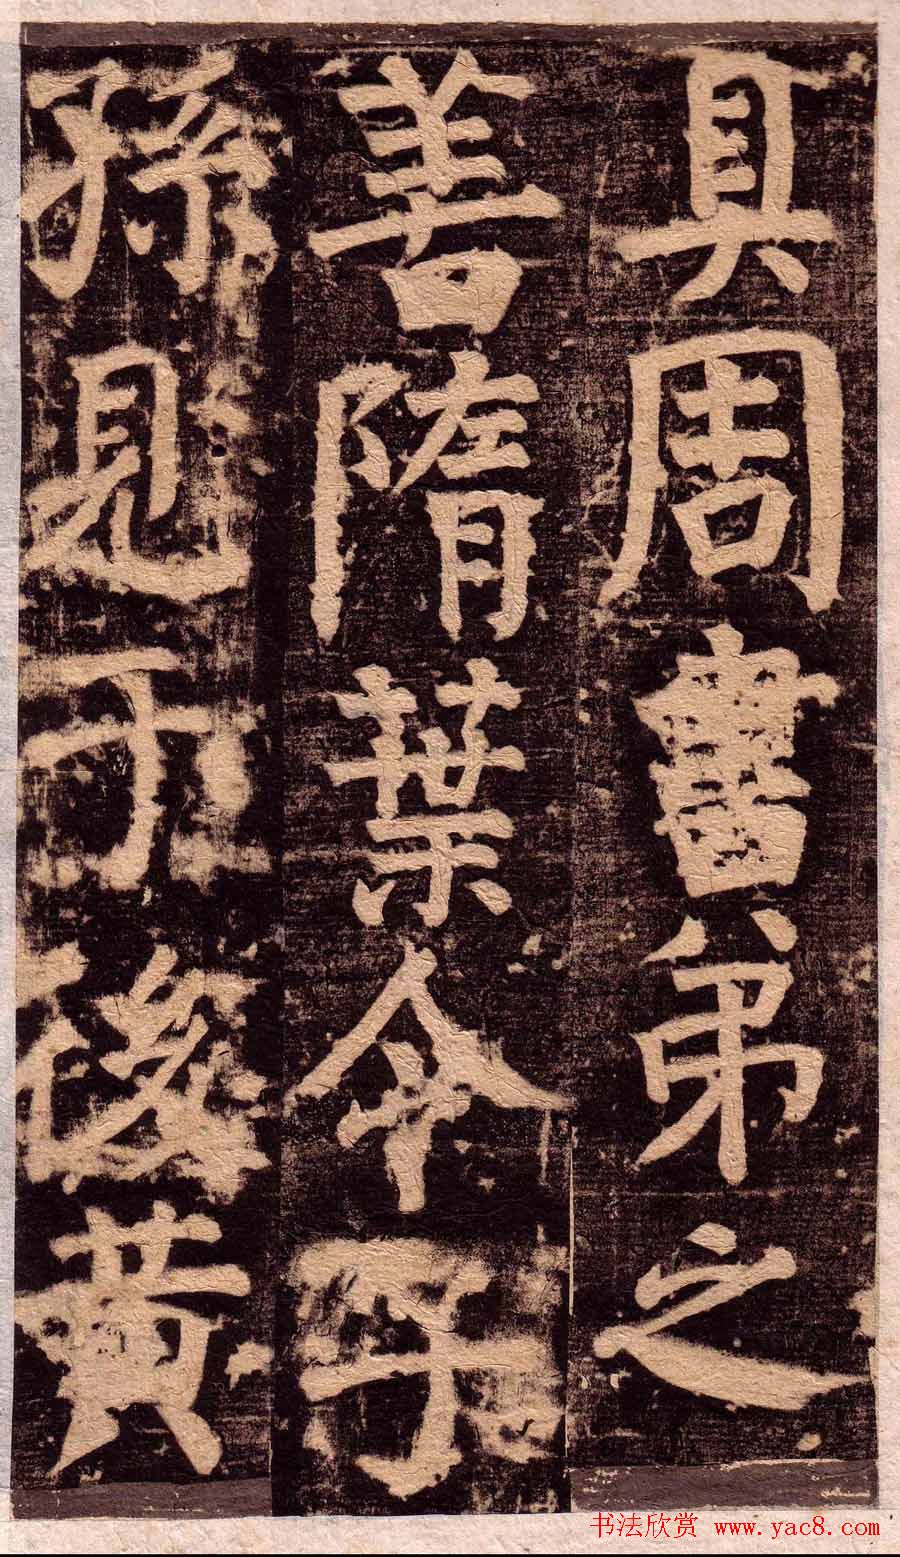 具周書弟之
善隋葉令子
孫見于後黃
书法欣赏 www.yac8.com